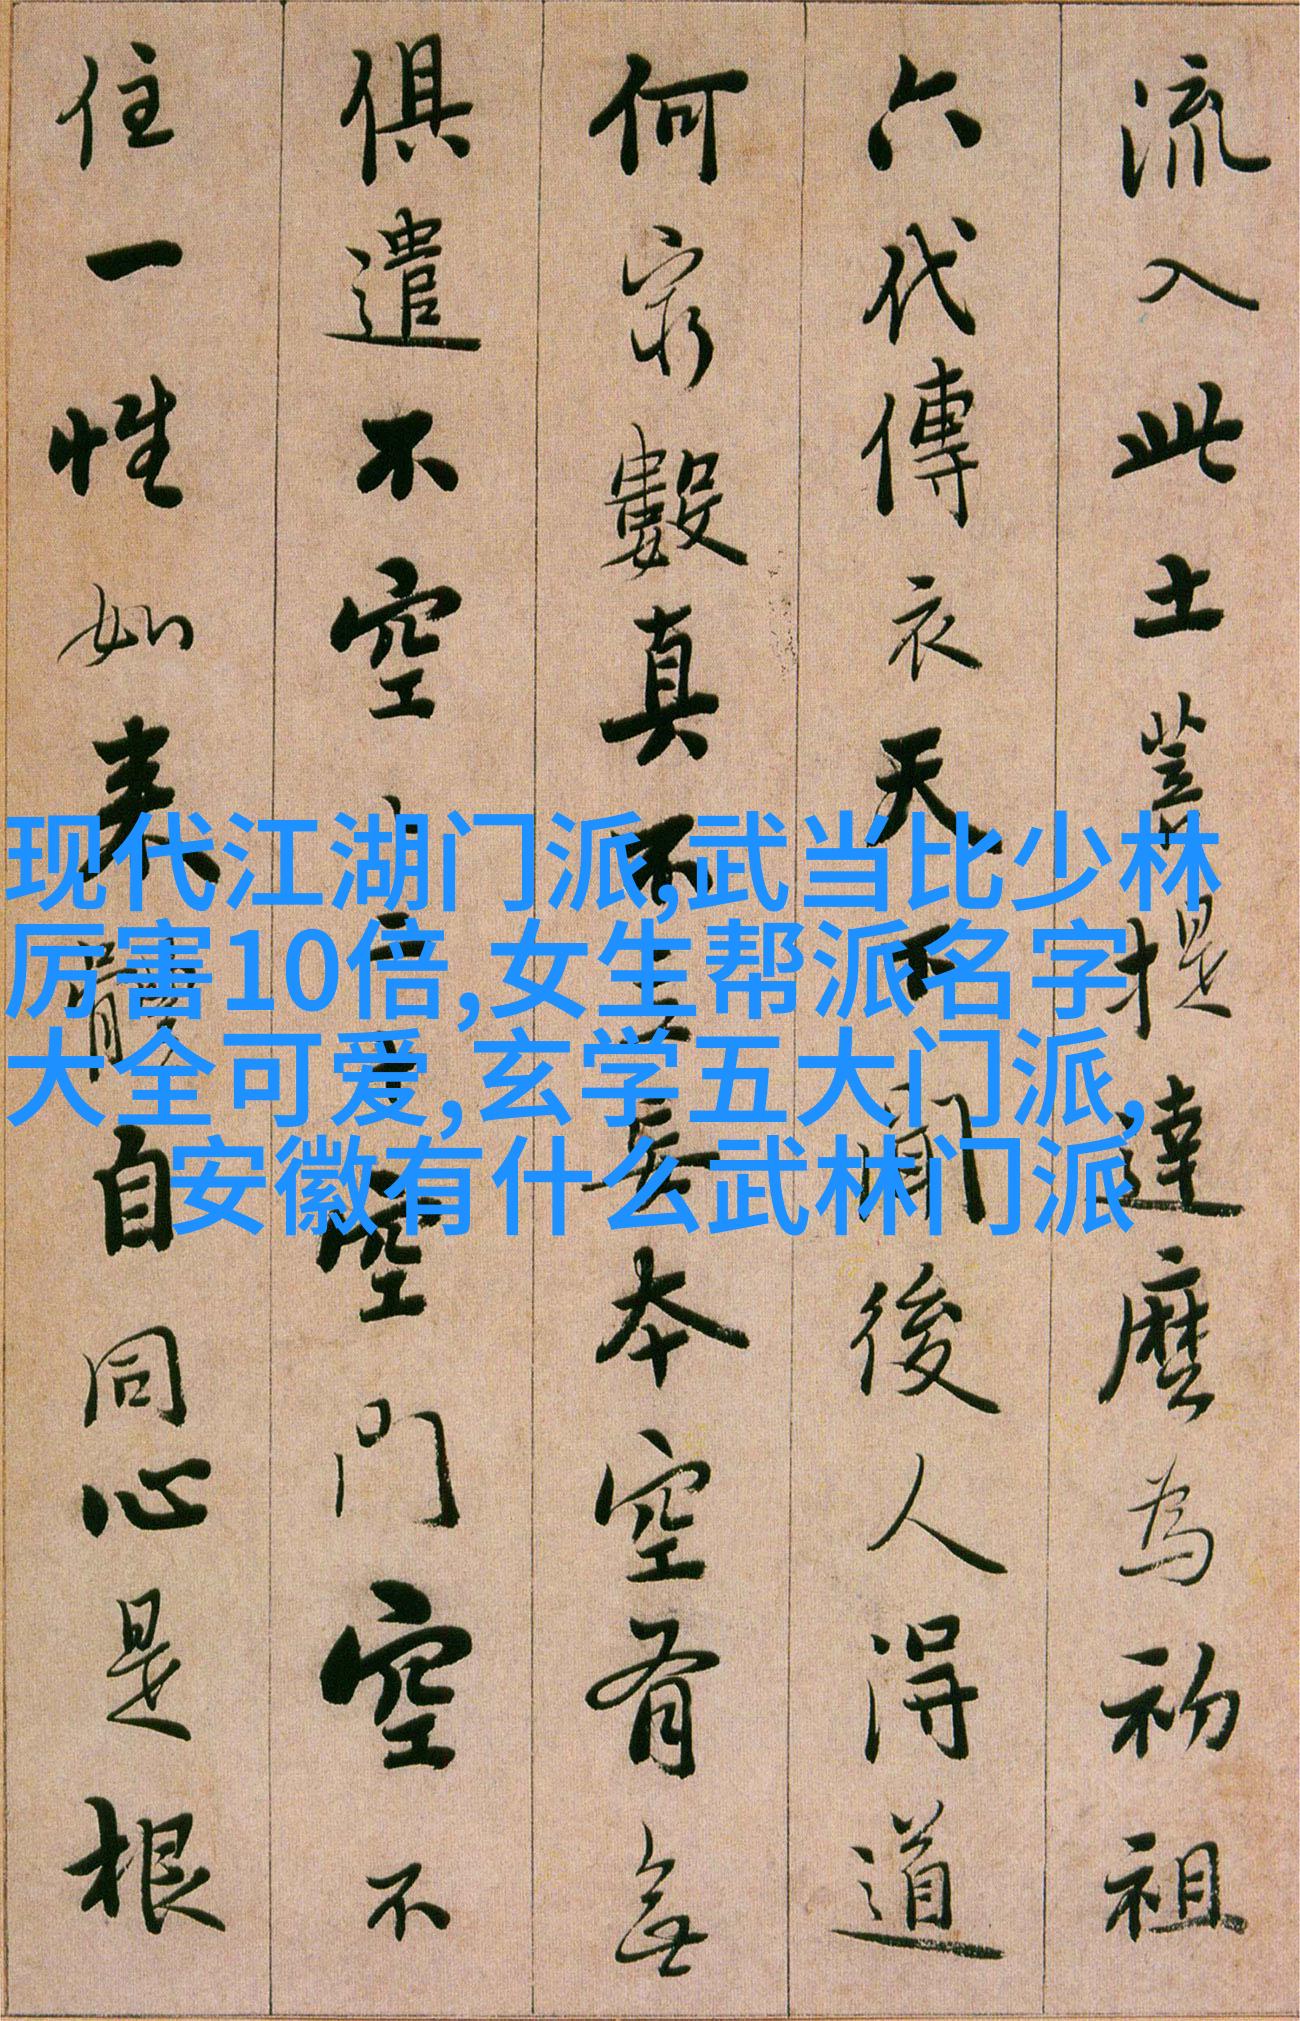 流入此土菩提達麼為初祖
六代傳衣天下聞後人得道
何窮數真不立妄本空有無
俱遣不空空門空不
住一性如来體自同心是根
现代江湖门派,武当比少林
厉害10倍,女生帮派名字
大全可爱,玄学五大门派,
安徽有什么武林门派